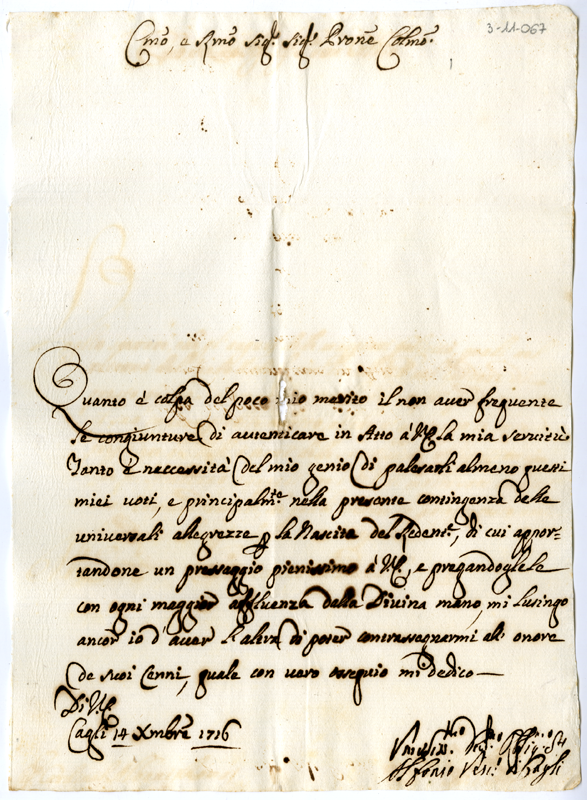 3-11-067
Emo, e Rmo Sigr. Sigr. Prone Colmo.
Quanto è colpa del poco mio merito il non aver frequente
le congiunture di autenticare in Atto à VE la mia servitù
Tanto è neccessità del mio genio di palesarli almeno questi
miei voti, e principalmte. nella presente contingenza delle
universali allegrezze p la Nascita del Redente, di cui appor=
tandone un pressaggio pienissimo à VE, e pregandoglele
con ogni maggior affluenza dalla Divina mano, mi lusingo
ancor io d'aver l'altra di poter contrassegnarmi all' onore
de suoi Cenni, quale con vero ossequio mi dedico—
Di VE
Cagli 14 Xmbre 1716
Alfonso Vesc. di Cagli